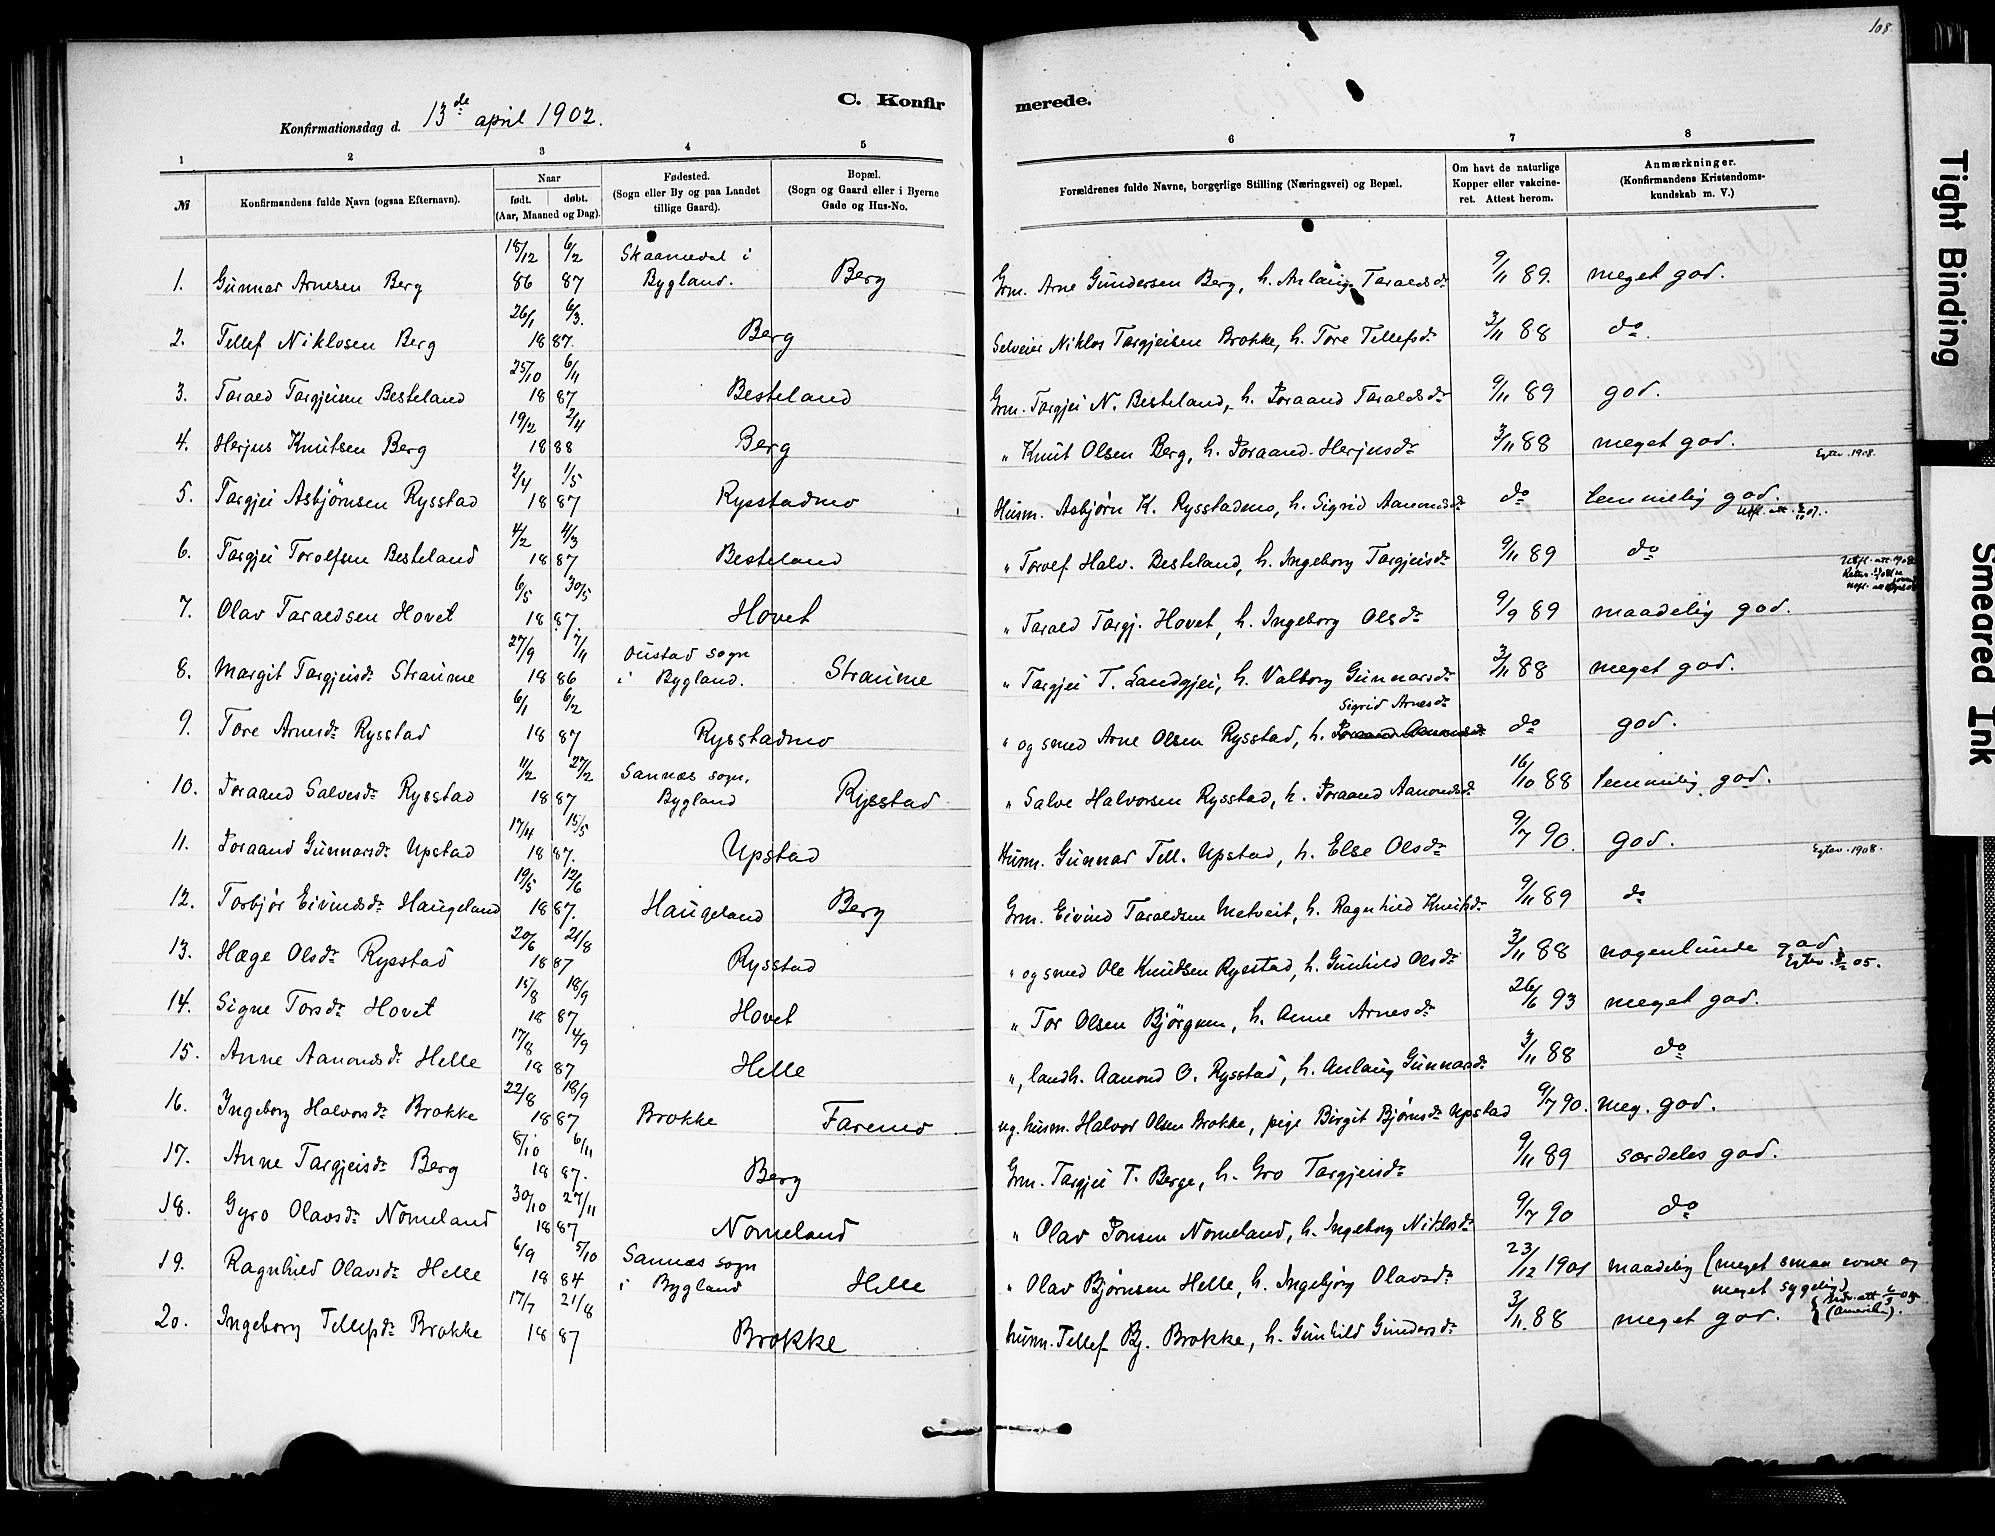 108
C. Konfirmerede.
Konfirmationsdag d. 13de april 1902.
1 2 3 4 5 6 7 8
№
Konfirmandens fulde Navn (ogsaa Efternavn).
Naar
født. døbt.
(Aar, Maaned og Dag).
Fødested.
(Sogn eller By og paa Landet
tillige Gaard).
Bopæl.
(Sogn og Gaard eller i Byerne
Gade og Hus-No.
Forældrenes fulde Navne, borgerlige Stilling (Næringsvei) og Bopæl.
Om havt de naturlige
Kopper eller vakcine-
ret. Attest herom.
Anmærkninger.
(Konfirmandens Kristendoms-
kundskab m. V.)
18/12 6/2 Skaamedal i
1. Gunnar Arnesen Berg 86 87 Bygland. Berg Grm. Arne Gundersen Berg, h. Anlaug Taraldsdr 9/11 89. meget god.
26/1 6/3.
2. Tellef Niklosen Berg 1887. Berg Selveier Niklos Targjeisen Brokke, h. Tore Tellefsdr 3/11 88 do.
25/10 6/11
3. Tarald Targjeisen Besteland 1887 Besteland Grm. Targjei N. Besteland, h. Joraand Taraldsdr 9/11 89 god.
19/2 2/4
4. Herjus Knutsen Berg 1888 Berg " Knut Olsen Berg, h. Joraand Herjusdr 3/11 88 meget god.
Egtev. 1908.
1/5
5. Targjei Asbjørnsen Rysstad 1887 Rysstadmo Husm. Asbjørn K. Rysstadmo, h. Sigrid Aanondsdr do temmelig god.
4/2 4/3
6. Targjei Torolfsen Besteland 1887 Besteland " Torolf Halv. Besteland, h. Ingeborg Targjeisdr 9/11 89 do
6/5 30/5
7. Olav Taraldsen Hovet 1887. Hovet " Tarald Targj. Hovet, h. Ingeborg Olsdr 9/9 89 maadelig god.
27/9 7/11 Oustad sogn
8. Margit Targjeisdr Straume 1886 i Bygland. Straume " Targjei T. Landgjei, h. Valborg Gunnarsdr 3/11 88 meget god.
6/1 6/2 Sigrid Arnesdr
9. Tore Arnesdr Rysstad 1887 Rysstadmo " og smed Arne Olsen Rysstad, h. Joraand Aanondsdr do god.
11/2 27/2 Sannæs sogn,
10. Joraand Salvesdr Rysstad 1887 Bygland Rysstad " Salve Halvorsen Rysstad, h. Joraand Aanondsdr 16/10 88 temmelig god.
17/4 15/5
11. Joraand Gunnarsdr Upstad 1887. Upstad Husm. Gunnar Tell. Upstad, h. Else Olsdr 9/7 90. god.
Egtev. 1908.
19/5 12/6
12. Torbjør Eivindsdr Haugeland 1887. Haugeland Berg Grm. Eivind Taraldsen Metveit, h. Ragnhild Knutsdr 9/11 89 do
20/6 21/8
13. Hæge Olsdr Rysstad 1887 Rysstad " og smed Ole Knudsen Rysstad, h. Gunhild Olsdr 3/11 88 nogenlunde god.
15/8 18/9
14. Signe Torsdr Hovet 1887 Hovet " Tor Olsen Bjørgum, h. Anne Arnesdr 26/6 93 meget god.
17/8 4/9
15. Anne Aanondsdr Helle 1887 Helle ", landh. Aanond O. Rysstad, h. Anlaug Gunnarsdr 3/11 88 do
22/8 18/9
16. Ingeborg Halvorsdr Brokke 1887 Brokke Faremo ug. husm. Halvor Olsen Brokke, pige Birgit Bjørnsdr Upstad 9/7 90. meg. god.
8/10 6/11
17. Anne Targjeisdr Berg 1887. Berg Grm. Targjei T. Berge, h. Gro Targjeisdr 9/11 89 særdeles god.
30/10 27/11
18. Gyro Olavsdr Nomeland 1887 Nomeland " Olav Jonsen Nomeland, h. Ingeborg Niklosdr 9/7 90 do
6/9 5/10 Sannæs sogn
19. Ragnhild Olavsdr Helle 1884 i Bygland Helle " Olav Bjørnsen Helle, h. Ingebjørg Olavsdr 23/12 1901 maadelig (meget smaa evner og
meget sygelig)
17/7 21/8
20. Ingeborg Tellefsdr Brokke 1887 Brokke husm. Tellef Bj. Brokke, h. Gunhild Gundersdr 3/11. 88 meget god. (Amerika).
Tight Binding
Smeared Ink